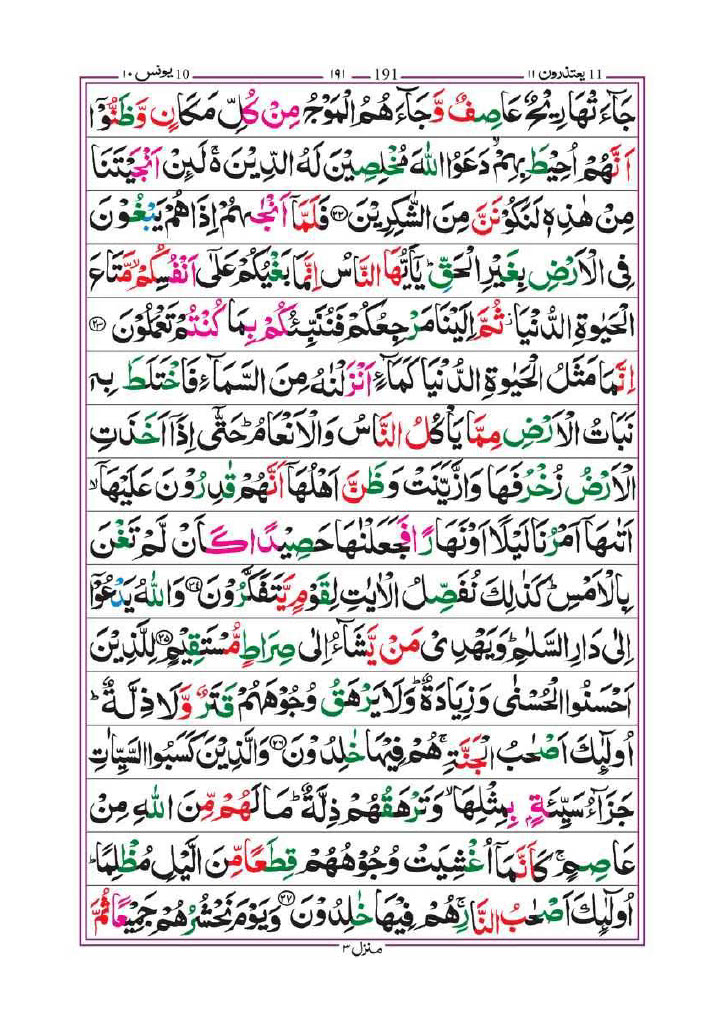 11 يعتذرون ۱۱ 191 ۱۹۱ 10 يونس ۱۰
جَآءَتْهَا رِيْحٌ عَاصِفٌ وَّجَآءَهُمُ الْمَوْجُ مِنْ كُلِّ مَكَانٍ وَّظَنُّوْۤا
اَنَّهُمْ اُحِيْطَ بِهِمْ ۙ دَعَوُا اللّٰهَ مُخْلِصِيْنَ لَهُ الدِّيْنَ ۚ لَئِنْ اَنْجَيْتَنَا
مِنْ هٰذِهٖ لَنَكُوْنَنَّ مِنَ الشّٰكِرِيْنَ ۲۲ فَلَمَّاۤ اَنْجٰىهُمْ اِذَا هُمْ يَبْغُوْنَ
فِى الْاَرْضِ بِغَيْرِ الْحَقِّ ؕ يٰۤاَيُّهَا النَّاسُ اِنَّمَا بَغْيُكُمْ عَلٰٓى اَنْفُسِكُمْ ۙ مَّتَاعَ
الْحَيٰوةِ الدُّنْيَا ۫ ثُمَّ اِلَيْنَا مَرْجِعُكُمْ فَنُنَبِّئُكُمْ بِمَا كُنْتُمْ تَعْمَلُوْنَ ۲۳
اِنَّمَا مَثَلُ الْحَيٰوةِ الدُّنْيَا كَمَآءٍ اَنْزَلْنٰهُ مِنَ السَّمَآءِ فَاخْتَلَطَ بِهٖ
نَبَاتُ الْاَرْضِ مِمَّا يَاْكُلُ النَّاسُ وَالْاَنْعَامُ ؕ حَتّٰۤى اِذَاۤ اَخَذَتِ
الْاَرْضُ زُخْرُفَهَا وَازَّيَّنَتْ وَظَنَّ اَهْلُهَاۤ اَنَّهُمْ قٰدِرُوْنَ عَلَيْهَاۤ ۙ
اَتٰىهَاۤ اَمْرُنَا لَيْلًا اَوْ نَهَارًا فَجَعَلْنٰهَا حَصِيْدًا كَاَنْ لَّمْ تَغْنَ
بِالْاَمْسِ ؕ كَذٰلِكَ نُفَصِّلُ الْاٰيٰتِ لِقَوْمٍ يَّتَفَكَّرُوْنَ ۲۴ وَاللّٰهُ يَدْعُوْۤا
اِلٰى دَارِ السَّلٰمِ ؕ وَيَهْدِىْ مَنْ يَّشَآءُ اِلٰى صِرَاطٍ مُّسْتَقِيْمٍ ۲۵ لِلَّذِيْنَ
اَحْسَنُوا الْحُسْنٰى وَزِيَادَةٌ ؕ وَلَا يَرْهَقُ وُجُوْهَهُمْ قَتَرٌ وَّلَا ذِلَّةٌ ؕ
اُولٰٓئِكَ اَصْحٰبُ الْجَنَّةِ ۚ هُمْ فِيْهَا خٰلِدُوْنَ ۲۶ وَالَّذِيْنَ كَسَبُوا السَّيِّاٰتِ
جَزَآءُ سَيِّئَةٍۢ بِمِثْلِهَا ۙ وَتَرْهَقُهُمْ ذِلَّةٌ ؕ مَا لَهُمْ مِّنَ اللّٰهِ مِنْ
عَاصِمٍ ۚ كَاَنَّمَاۤ اُغْشِيَتْ وُجُوْهُهُمْ قِطَعًا مِّنَ الَّيْلِ مُظْلِمًا ؕ
اُولٰٓئِكَ اَصْحٰبُ النَّارِ ۚ هُمْ فِيْهَا خٰلِدُوْنَ ۲۷ وَيَوْمَ نَحْشُرُهُمْ جَمِيْعًا ثُمَّ
منزل ۳